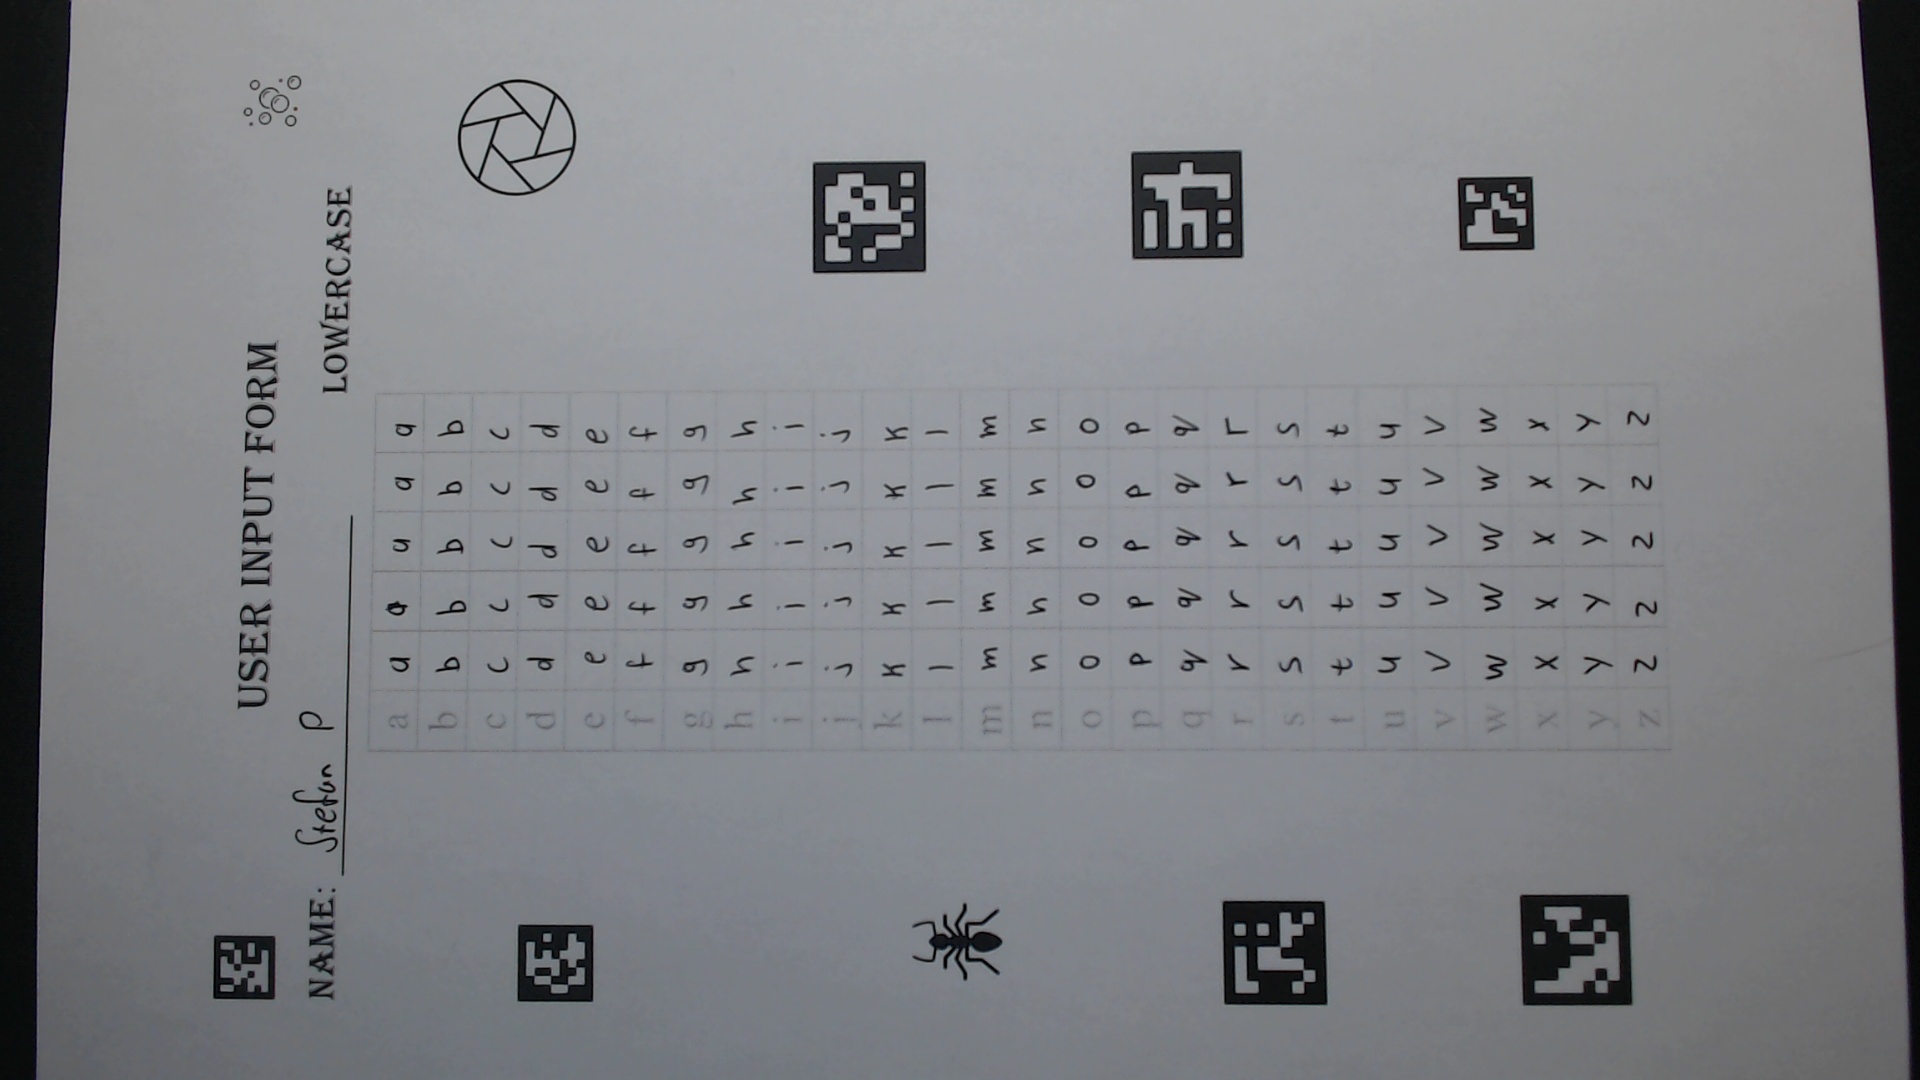 USER INPUT FORM
NAME: Stefan P
LOWERCASE
a a a a a a
b b b b b b
c c c c c c
d d d d d d
e e e e e e
f f f f f f
g g g g g g
h h h h h h
i i i i i i
j j j j j j
k k k k k k
l l l l l l
m m m m m m
n n n n n n
o o o o o o
p p p p p p
q q q q q q
r r r r r r
s s s s s s
t t t t t t
u u u u u u
v v v v v v
w w w w w w
x x x x x x
y y y y y y
z z z z z z